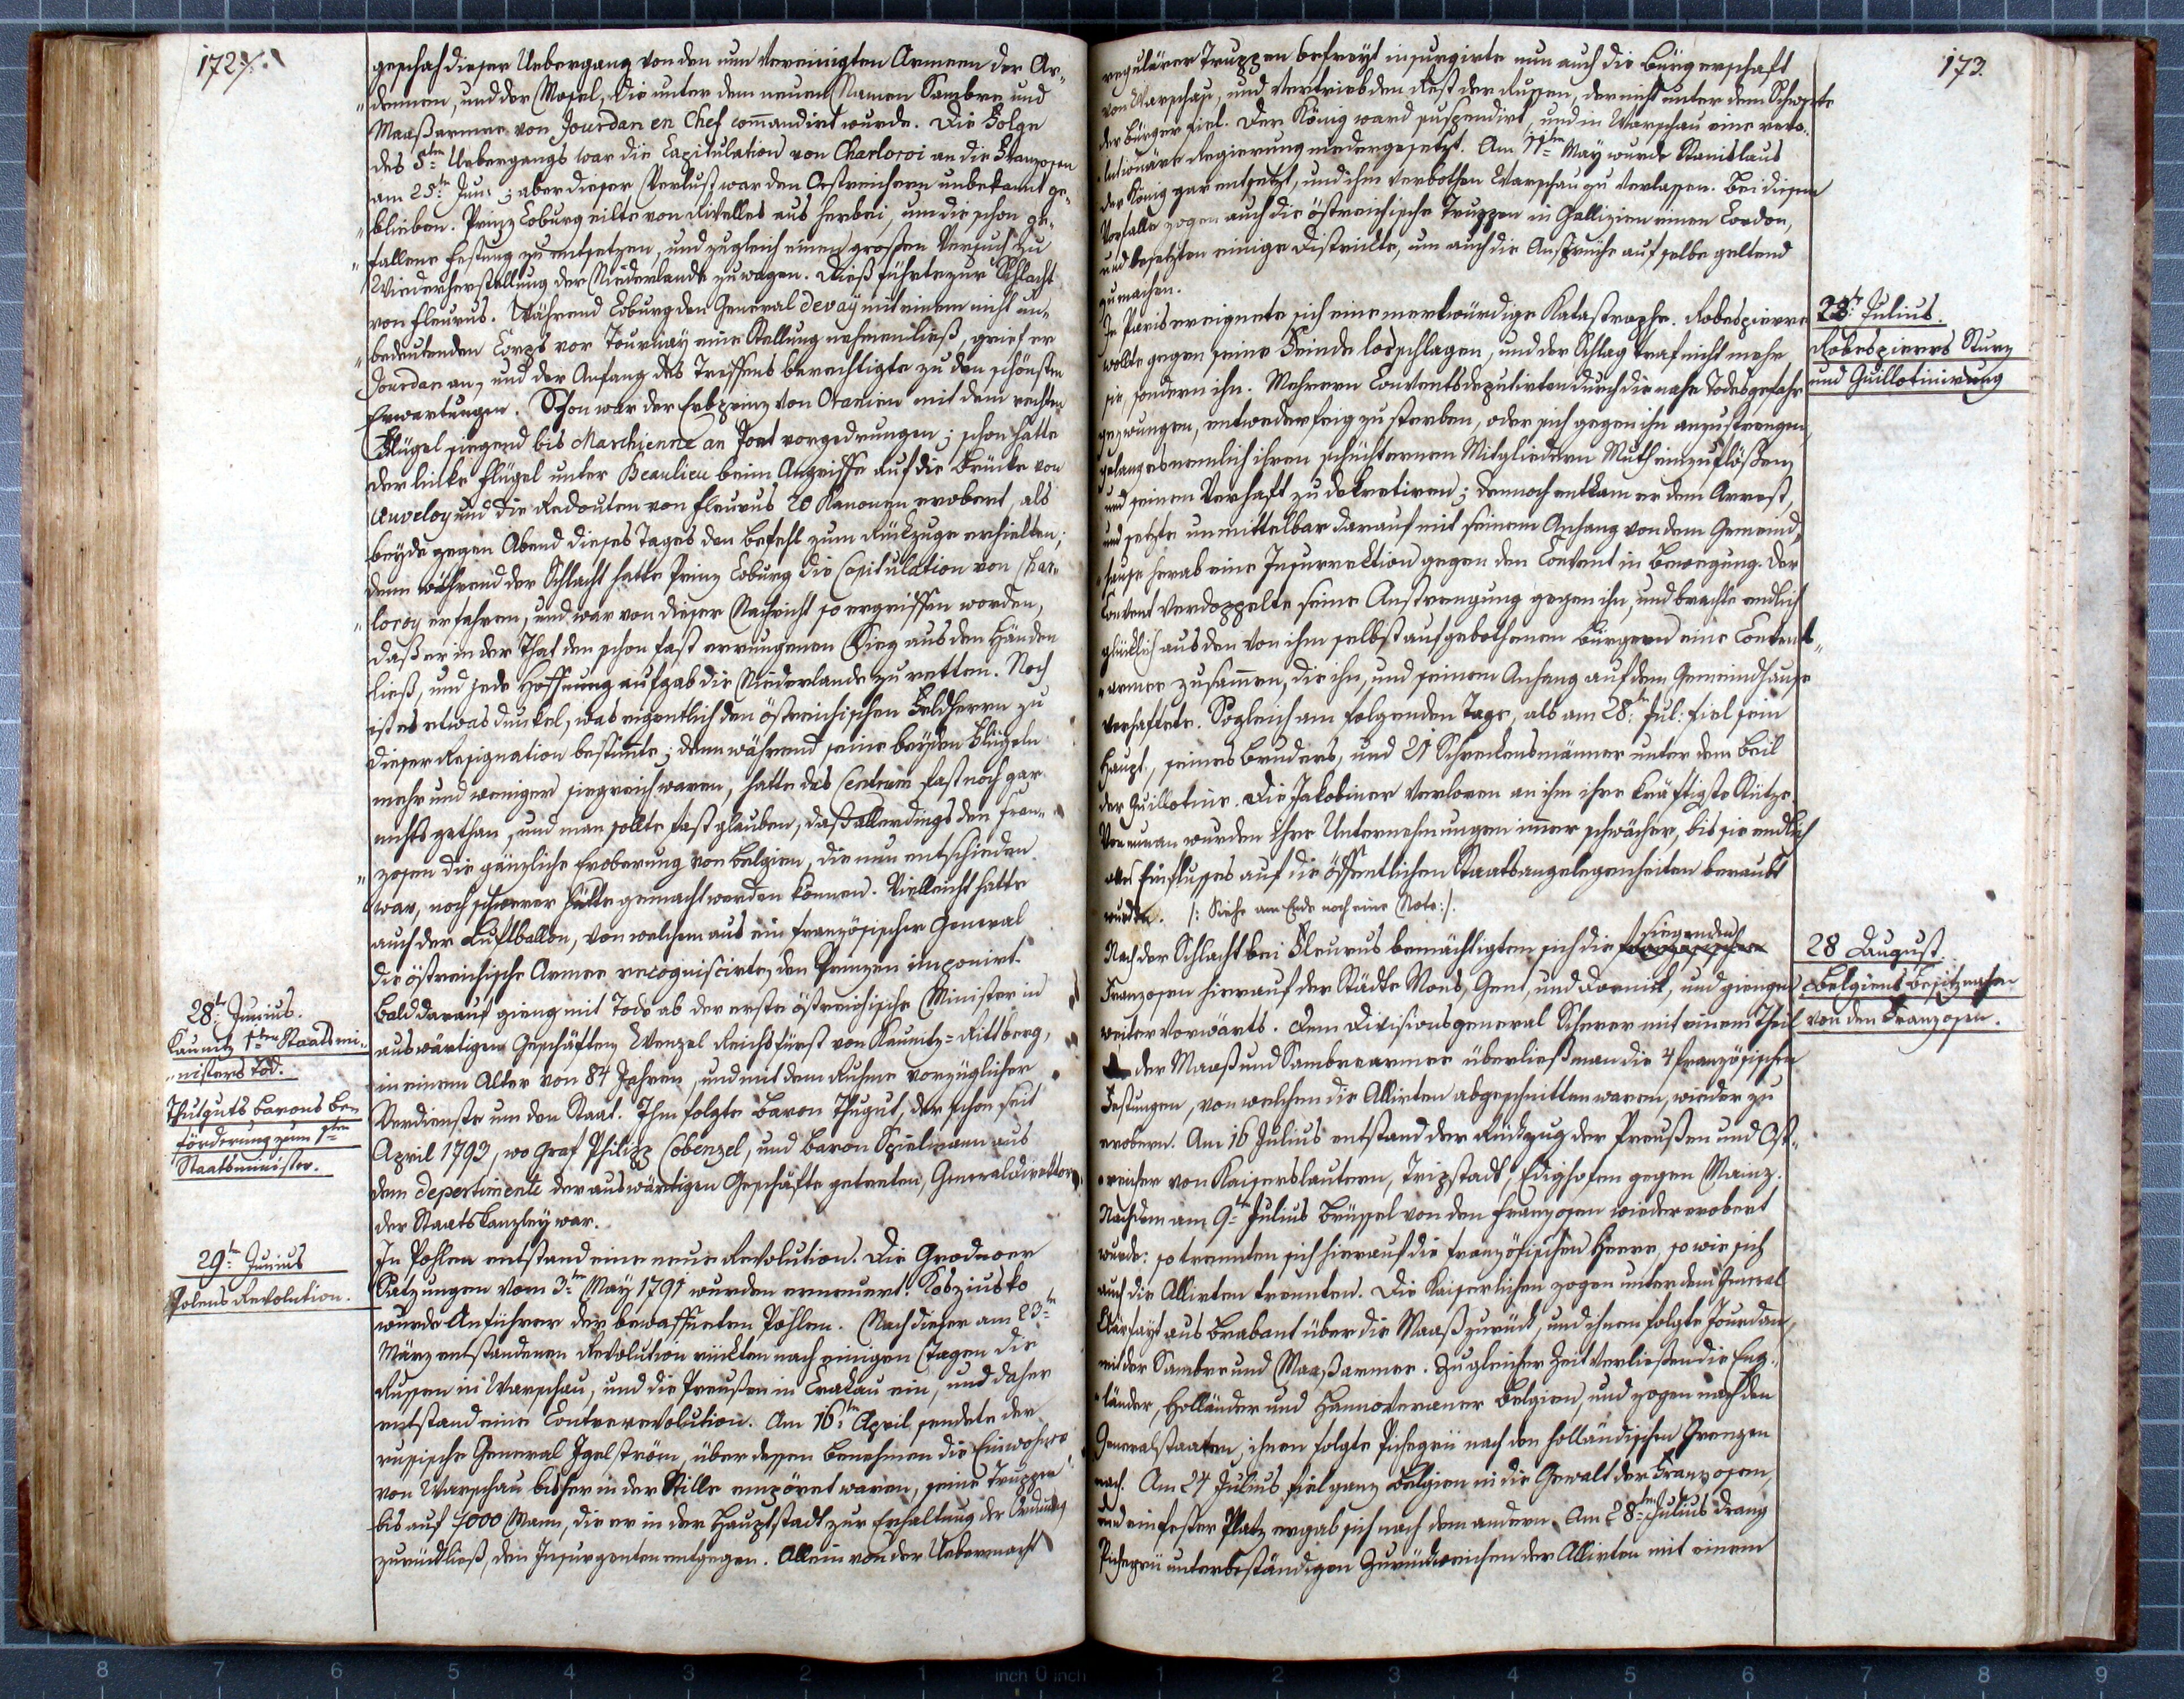 172.
geschah dieser Uebergang von den nun vereinigten Armeen der Ar„
„dennen, und der Mosel, die unter dem neuen Namen Sambre und
Maaßarmee von Jourdan en Chef commandirt wurde. Die Folge
des 5ten Uebergangs war die Capitulation von Charloroi an die Franzosen
am 25ten Jun: ; aber dieser Verlust war den Oestreichern unbekannt ge„
„blieben. Prinz Coburg eilte von Nivelles aus herbei, um die schon ge„
„fallene Festung zu entsetzen, und zugleich einen großen Versuch zu
Wiederherstellung der Niederlande zu wagen. Dieß führte zur Schlacht
von Fleurus. Während Coburg den General Devay mit einem nicht un„
„bedeutenden Corps vor Tournay eine Stellung nehmen ließ, grief er
Jourdan an, und der Anfang des Treffens berechtigte zu den schönsten
Erwartungen. Schon war der Erbprinz von Oranien mit dem rechten
Flügel siegend bis Marchienne an Pont vorgedrungen; schon hatte
der linke Flügel unter Beaulieu beim Angriffe auf die Brücke von
Auveloy und die Redouten von Fleurus 20 Kanonen erobert, als
beyde gegen Abend dieses Tages den Befehl zum Rückzuge erhielten;
denn während der Schlacht hatte Prinz Coburg die Capitulation von Char„
„loroy erfahren, und war von dieser Nachricht so ergriffen worden,
daß er in der That den schon fast errungenen Sieg aus den Händen
ließ, und jede Hoffnung aufgab die Niederlande zu retten. Noch
ist es etwas dunkel, was eigentlich den östreichischen Feldherrn zu
dieser Resignation bestimte; denn während seine beyden Flügeln
mehr und weniger siegreich waren, hatte das Centrum fast noch gar
nichts gethan, und man sollte fast glauben, daß allerdings den Fran„
„zosen die gänzliche Eroberung von Belgien, die nun entschieden
war, noch schwerer hätte gemacht werden können. Vielleicht hatte
auch der Luftballon, von welchem aus ein französischer General
die östreichische Armee recogniscirte, den Prinzen imponirt.
28te Junius.
Kaunitz 1ten Staatsmi„
„nisters Tod.
Thuguts Barons Be„
förderung zum 1ten
Staatsminister.
Bald darauf gieng mit Tode ab der erste östreichische Minister in
auswärtigen Geschäften Wenzel Reichsfürst von Kaunitz=Rittberg,
in einem Alter von 84 Jahren, und mit dem Ruhme vorzüglicher
Verdienste um den Staat. Ihm folgte Baron Thugut, der schon seit
April 1793, wo Graf Philipp Cobenzel, und Baron Spielmann aus
dem Depertimente der auswärtigen Geschäfte getreten, Generaldirektor
der Staatskanzley war.
29te Junius
Polens Revolution.
In Pohlen entstand eine neue Revolution. Die Grodnoer
Satzungen vom 3ten May 1791 wurden erneuert. Kosziusko
wurde Anführer der bewaffneten Pohlen. Nach dieser am 25ten
März entstandenen Revolution rückten nach einigen Tagen die
Russen in Warschau, und die Preußen in Crakau ein, und daher
entstand eine Contrerevolution. Am 16ten April sendete der
russische General Igelström, über dessen Benehmen die Einwohner
von Warschau bisher in der Stille empöret waren, seine Truppen
bis auf 4000 Mann, die er in der Hauptstadt zur Erhaltung der Ordnung
zurückließ, den Insurgenten entgegen. Allein von der Uebermacht
173.
regulärer Truppen befreyt insurgirte nun auch die Bürgerschaft
von Warschau, und vertrieb den Rest der Russen, der nicht unter dem Schwerte
der Bürger fiel. Der König ward suspendirt, und in Warschau eine revo„
„lutionäre Regierung niedergesetzt. Am 11ten May wurde Stanislaus
der König gar entsetzt, und ihm verbothen Warschau zu verlassen. Bei diesem
Vorfalle zogen auch die östreichische Truppen in Gallizien einen Cordon,
und besetzten einige Districkte, um auch die Ansprüche auf selbe geltend
zu machen.
28te Julius.
Robespierrs Sturz
und Guillotinirung
In Paris ereignete sich eine merkwürdige Katastrophe. Robespierre
wollte gegen seine Feinde losschlagen, und der Schlag traf nicht mehr
sie, sondern ihn. Mehrern Conventsdeputirten durch die nahe Todesgefahr
gezwungen, entweder feig zu sterben, oder sich gegen ihn anzustrengen,
gelang es nemlich ihren schüchternen Mitgliedern Muth einzuflößen,
und seinen Verhaft zu dekretiren; dennoch entkam er dem Arrest,
und setzte unmittelbar darauf mit seinem Anhang von dem Gemeind„
„hause herab eine Insurrektion gegen den Convent in Bewegung. Der
Convent verdoppelte seine Anstrengung gegen ihn, und brachte endlich
glücklich aus den von ihm selbst aufgebothenen Bürgern eine Convent„
„armee zusammen, die ihn, und seinen Anhang auf dem Gemeindhause
verhaftete. Sogleich am folgenden Tage, als am 28ten Jul: fiel sein
Haupt, seines Bruders, und 21 Schreckensmänner unter dem Beil
der Guillotine. Die Jakobiner verloren an ihm ihre kräftigste Stütze.
Von nun an wurden ihre Unternehmungen immer schwächer, bis sie endlich
alles Einflusses auf die öffentlichen Staatsangelegenheiten beraubt
wurden. /: Siehe am Ende noch eine Note :/
28 August.
Belgiens Besitznahme
von den Franzosen.
Nach der Schlacht bei Fleurus bemächtigten sich die siegenden
Franzosen hierauf der Städte Mons, Gent, und Dornick, und giengen
weiter vorwärts. Dem Divisionsgeneral Scherer mit einem Theil
der Maaß und Sambrearmee überließ man die 4 französischen
Festungen, von welchen die Allirten abgeschnitten waren, wieder zu
erobern. Am 16 Julius entstand der Rückzug der Preußen und Öst„
„reicher von Kaiserslautern, Tripstadt, Edighofen gegen Mainz.
Nachdem am 9ten Julius Brüssel von den Franzosen wieder erobert
wurde: so trennten sich hierauf die französischen Heere, so wie sich
auch die Allirten trennten. Die Kaiserlichen zogen unter dem General
Clärfayt aus Brabant über die Maaß zurück, und ihnen folgte Jourdan,
mit der Sambre und Maaßarmee. Zu gleicher Zeit verließen die Eng„
„länder, Holländer und Hannoveraner Belgien, und zogen nach den
Generalstaaten; ihnen folgte Pichegrü nach den holländischen Grenzen
nach. Am 24 Julius fiel ganz Belgien in die Gewalt der Franzosen,
und ein fester Platz ergab sich nach dem andern. Am 28ten Julius drang
Pichegrü unter beständigen Zurückweichen der Allirten mit einem